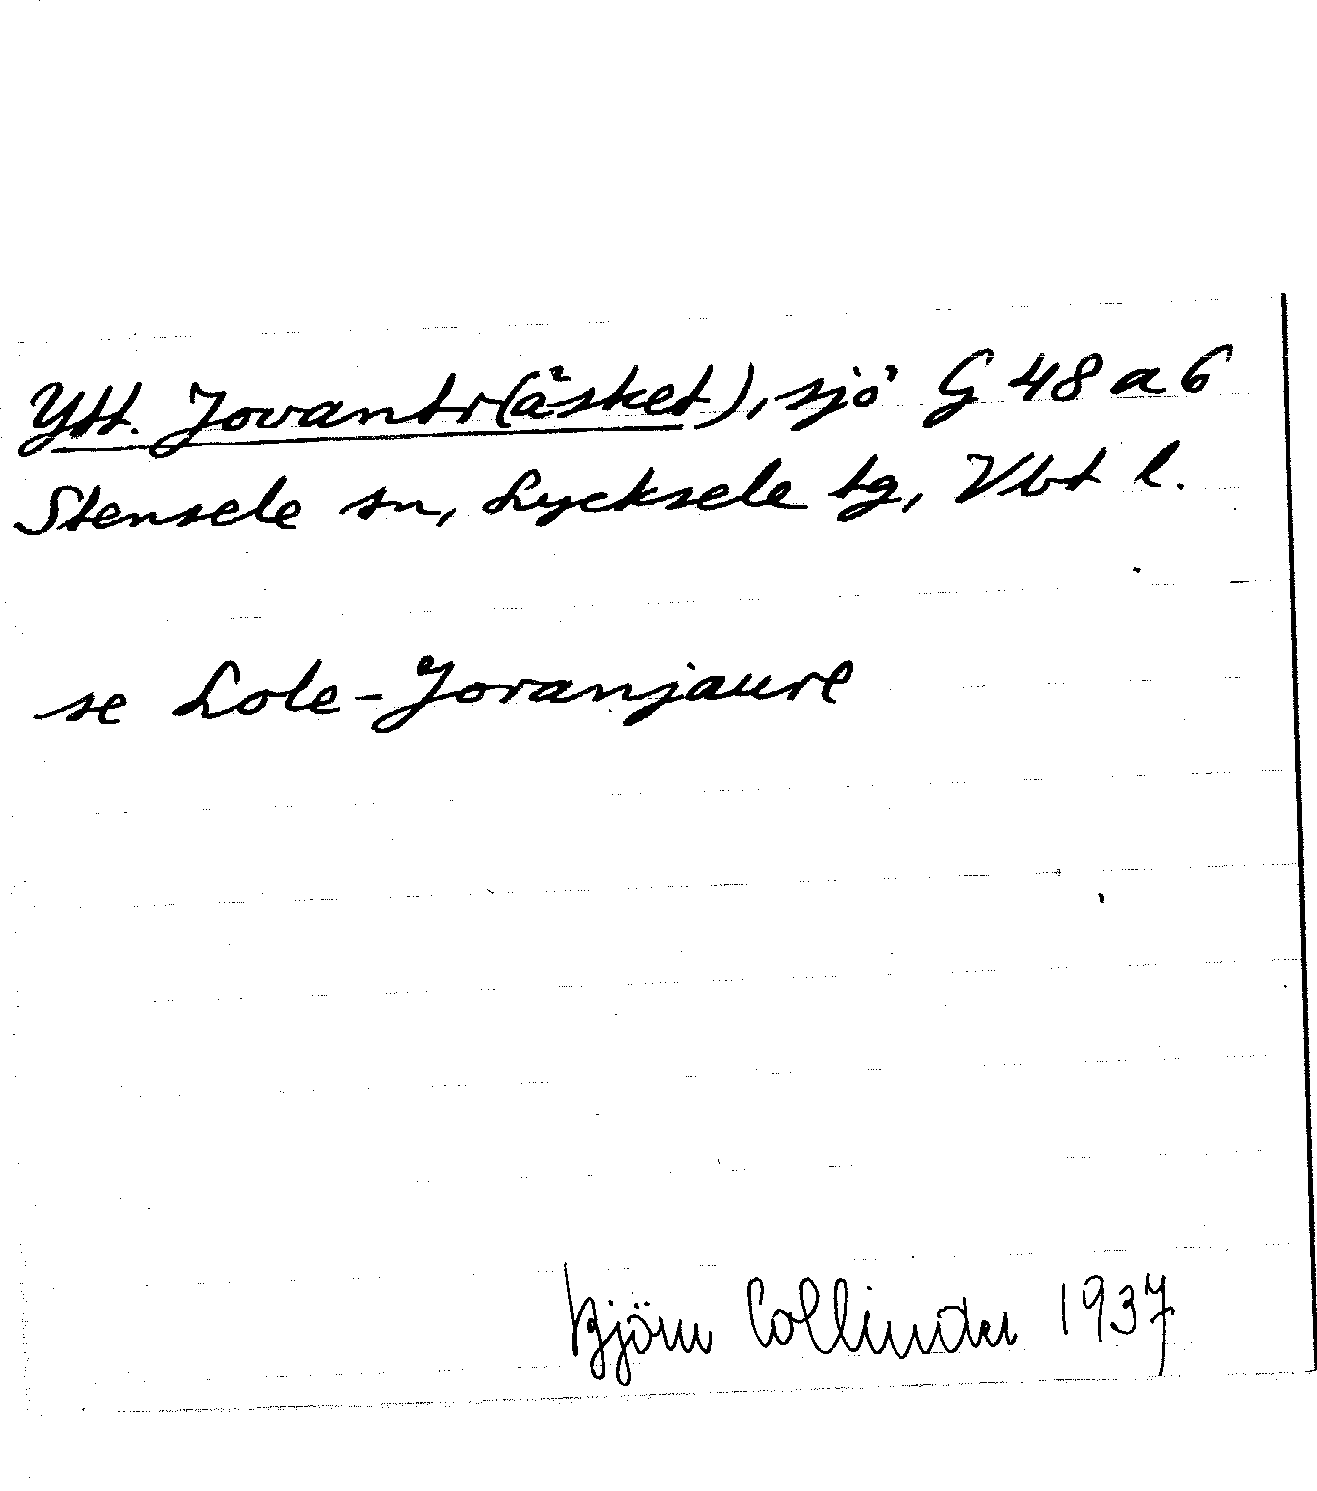 Ytt. Jovantr(äsket), sjö G 48 a 6
Stensele sn, Lycksele tg, Vbt l.
se Lole-Jovanjaure
Björn Collinder 1937